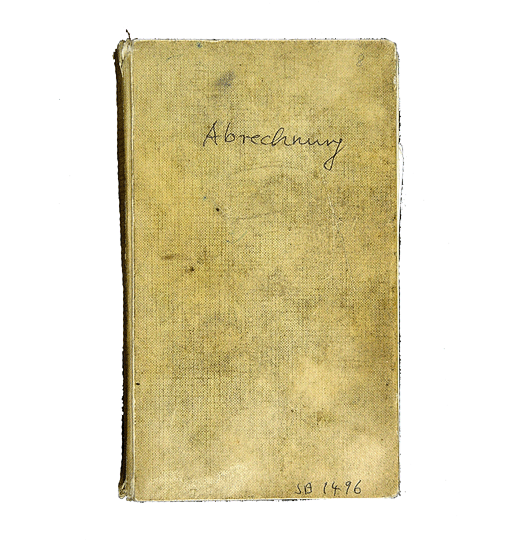 8
Abrechnung
SB 1496